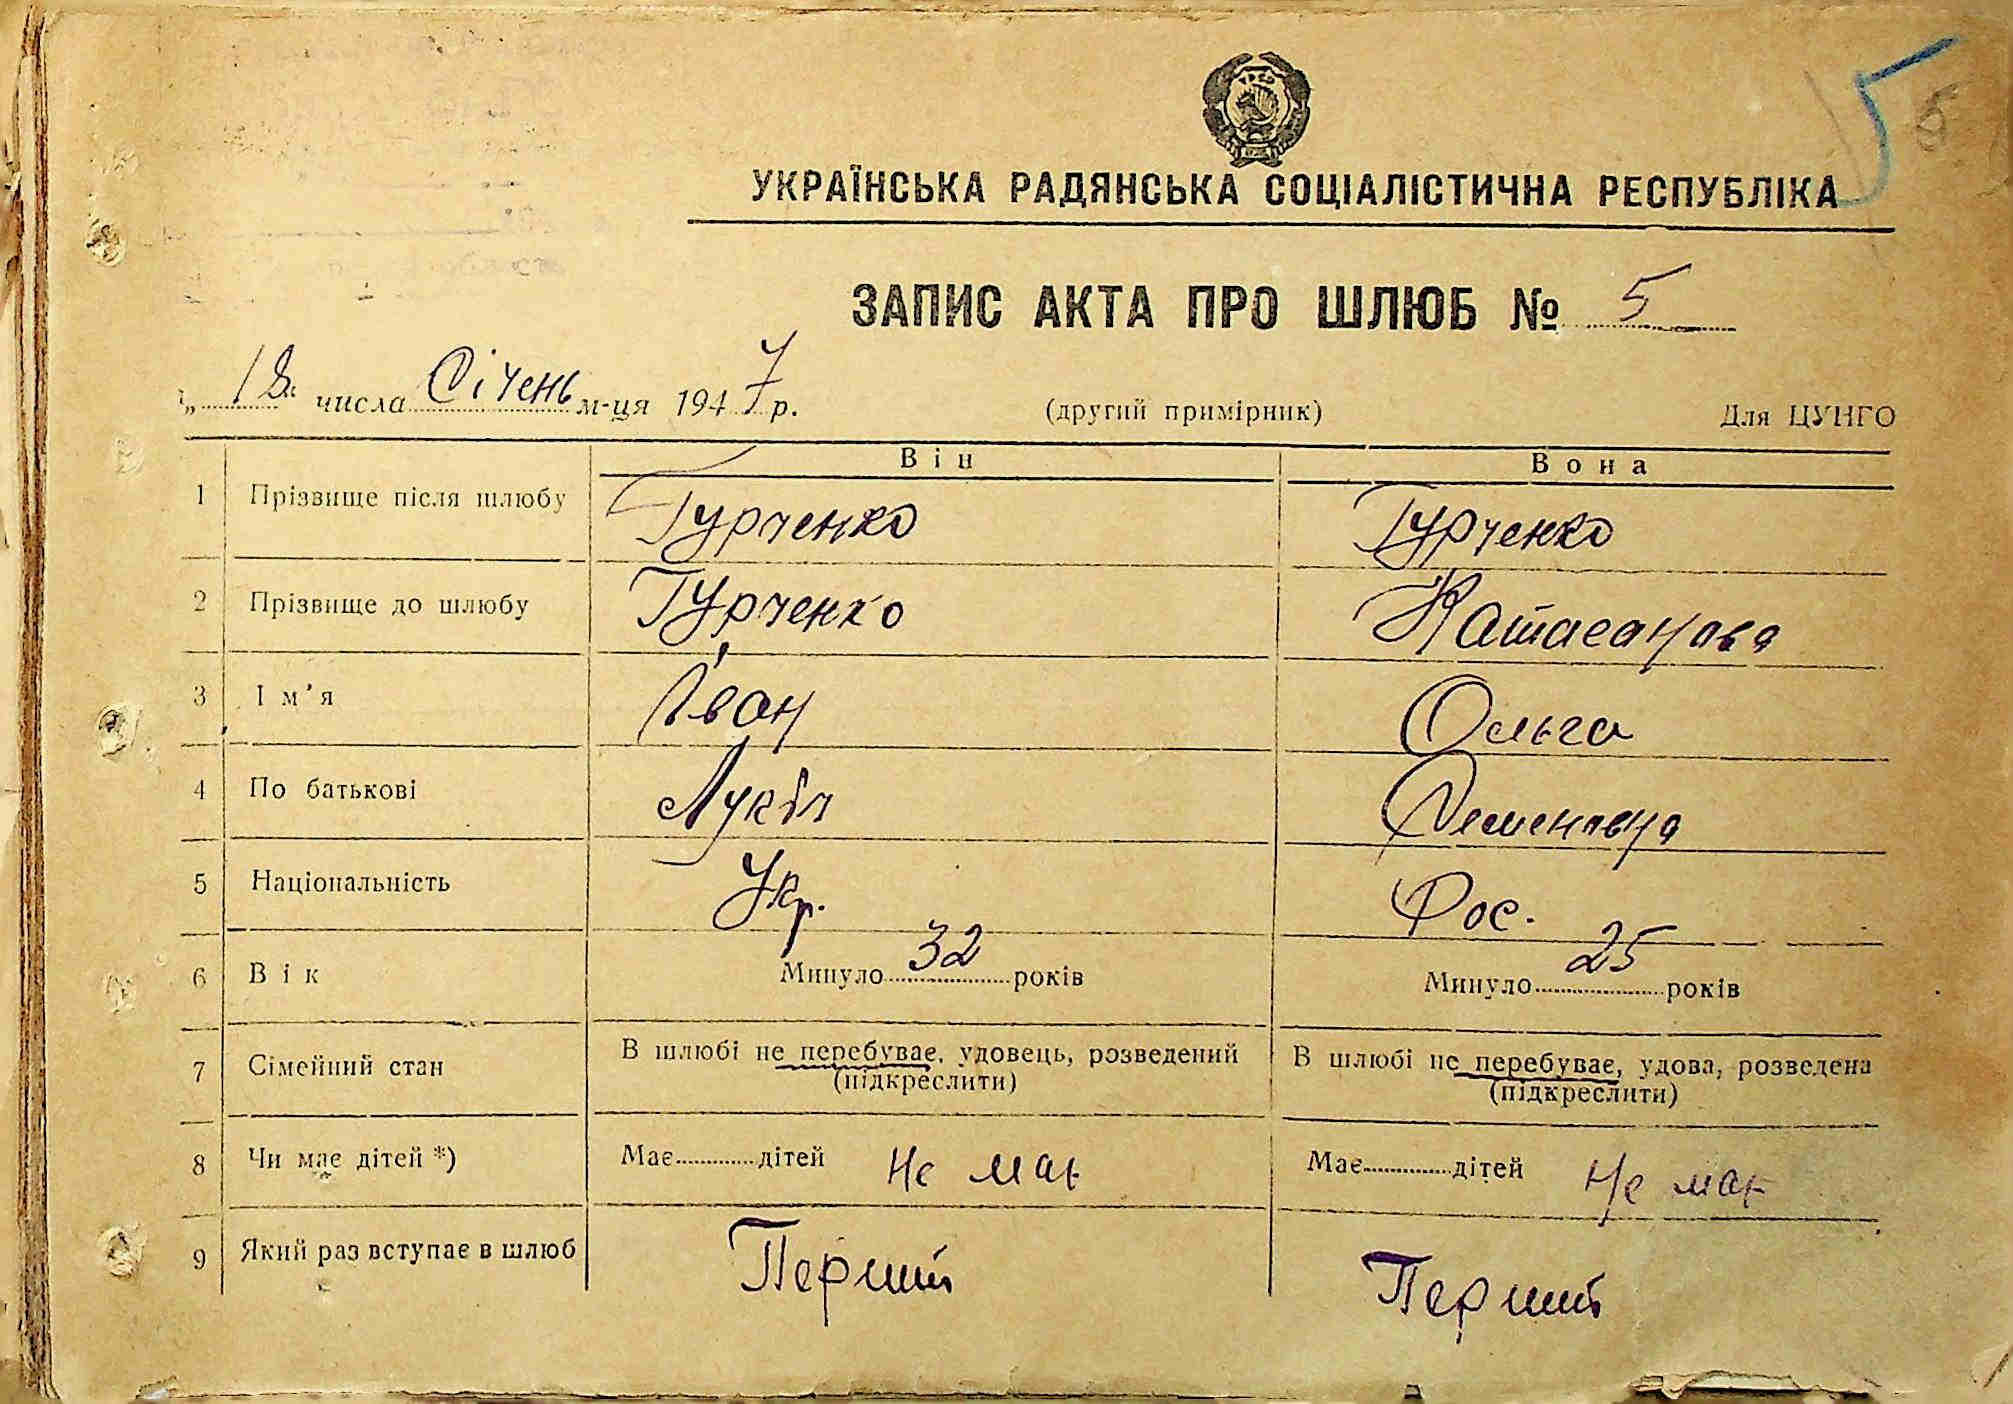 5
УКРАЇНСЬКА РАДЯНСЬКА СОЦІАЛІСТИЧНА РЕСПУБЛІКА
ЗАПИС АКТА ПРО ШЛЮБ № 5
„18“ числа Січень м-ця 1947 р. (другий примірник) Для ЦУНГО
Він Вона
1 Прізвище після шлюбу Гурченко Гурченко
2 Прізвище до шлюбу Гурченко Катасанова
3 Ім’я Іван Ольга
4 По батькові Лукіч Семеновна
5 Національність Укр. Рос.
6 Вік Минуло 32 років Минуло 25 років
7 Сімейний стан В шлюбі не перебуває, удовець, розведений В шлюбі не перебуває, удова, розведена
(підкреслити) (підкреслити)
8 Чи має дітей *) Має дітей Не має Має дітей Не має
9 Який раз вступає в шлюб Перший Перший